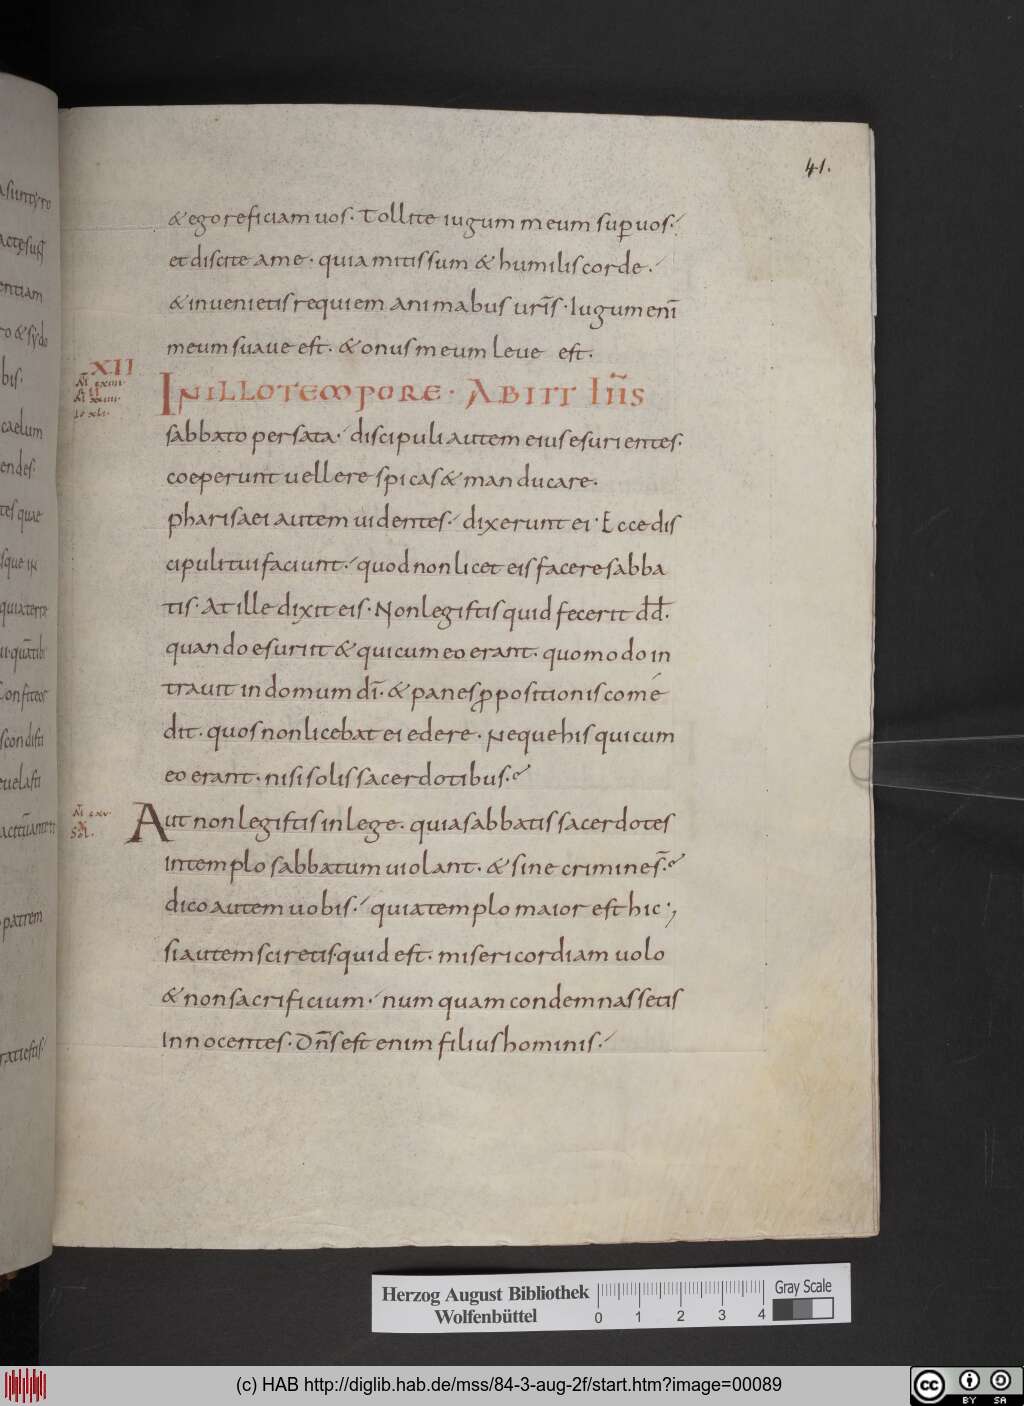 41.
& ego reficiam uos. Tollite iugum meum sup uos.
et discite a me. quia mitis sum & humilis corde.
& inuenietis requiem animabus urīs. Iugum enī
meum suaue est. & onus meum leue est.
XII
IN ILLO TEMPORE. ABIIT Iħs
sabbato per sata. discipuli autem eius esurientes.
coeperunt uellere spicas & manducare.
pharisaei autem uidentes. dixerunt ei. Ecce dis
cipuli tui faciunt. quod non licet eis facere sabba
tis. At ille dixit eis. Non legistis quid fecerit dd.
quando esuriit & qui cum eo erant. quomodo in
trauit in domum dī. & panes ꝓpositionis comé
dit. quos non licebat ei edere. Neque his qui cum
eo erant. nisi solis sacerdotibus.
Aut non legistis in lege. quia sabbatis sacerdotes
in templo sabbatum uiolant. & sine crimine s̄.
dico autem uobis. quia templo maior est hic.,
si autem sciretis quid est. misericordiam uolo
& non sacrificium. numquam condemnassetis
Innocentes. Dn̄s est enim filius hominis.
Herzog August Bibliothek
Wolfenbüttel
0 1 2 3 4
Gray Scale
(c) HAB http://diglib.hab.de/mss/84-3-aug-2f/start.htm?image=00089
cc BY SA